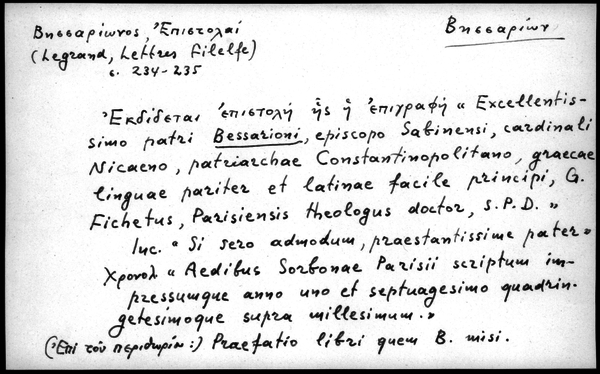 Βησσαρίωνος, Ἐπιστολαί
Βησσαρίων
(Legrand, Lettres Filelfe)
σ. 234-235
Ἐκδίδεται ἐπιστολή ἧς ἡ ἐπιγραφή « Excellentis-
simo patri Bessarioni, episcopo Sabinensi, cardinali
Nicaeno, patriarchae Constantinopolitano, graecae
linguae pariter et latinae facile principi, G.
Fichetus, Parisiensis theologus doctor, S.P.D. »
Inc. « Si sero admodum, praestantissime pater »
Χρονολ « Aedibus Sorbonae Parisii scriptum im-
pressumque anno uno et septuagesimo quadrin-
getesimoque supra millesimum. »
(Ἐπί τοῦ περιθωρίου :) Praefatio libri quem B. misi.